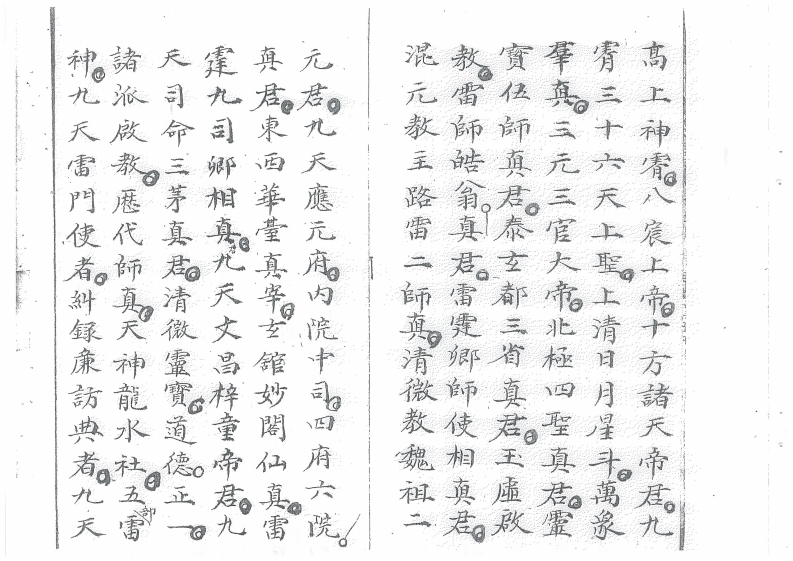 高上神霄八宸上帝十方諸天帝君九
霄三十六天上聖上清日月星斗萬象
羣真三元三官大帝北極四聖真君靈
寶伍師真君泰玄都三省真君玉虛啟
教雷師皓翁真君雷霆卿師使相真君
混元教主路雷二師真清微教魏祖二
元君九天應元府內院中司四府六院
真君東西華臺真宰玄館妙閣仙真雷
霆九司卿相真九天文昌梓童帝君九
天司命三茅真君清微靈寶道德正一
諸派啟教歷代師真天神龍水社五雷部
神九天雷門使者糾錄廉訪典者九天